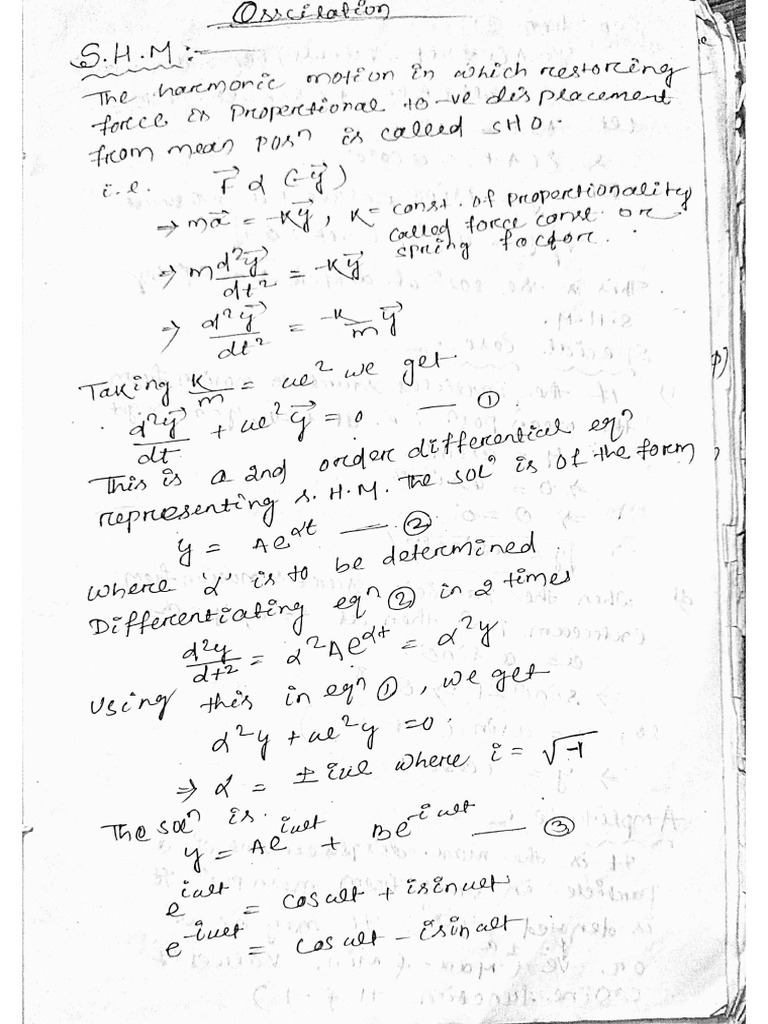 Osscilation
S.H.M:-
The harmonic motion in which restoring
force is Propertional to -ve displacement
from mean posⁿ is called SHO.
i.e. F⃗ α (-y⃗)
⇒ ma⃗ = -Ky⃗, K = const. of proportionality
called force const. or
spring factor.
⇒ m d²y⃗/dt² = -Ky⃗
⇒ d²y⃗/dt² = -K/m y⃗
Taking K/m = ω² we get
d²y⃗/dt + ω²y⃗ = 0 — ①
This is a 2nd order differential eqⁿ
representing S.H.M. The solⁿ is of the form,
y = Ae^αt — ②
where 'α' is to be determined
Differentiating eqⁿ ② in 2 times
d²y/dt² = α²Ae^αt = α²y
Using this in eqⁿ ①, we get
α²y + ω²y = 0.
⇒ α = ± iω where i = √-1
The solⁿ is.
y = Ae^iωt + Be^-iωt — ③
e^iωt = cos ωt + i sin ωt
e^-iωt = cos ωt - i sin ωt